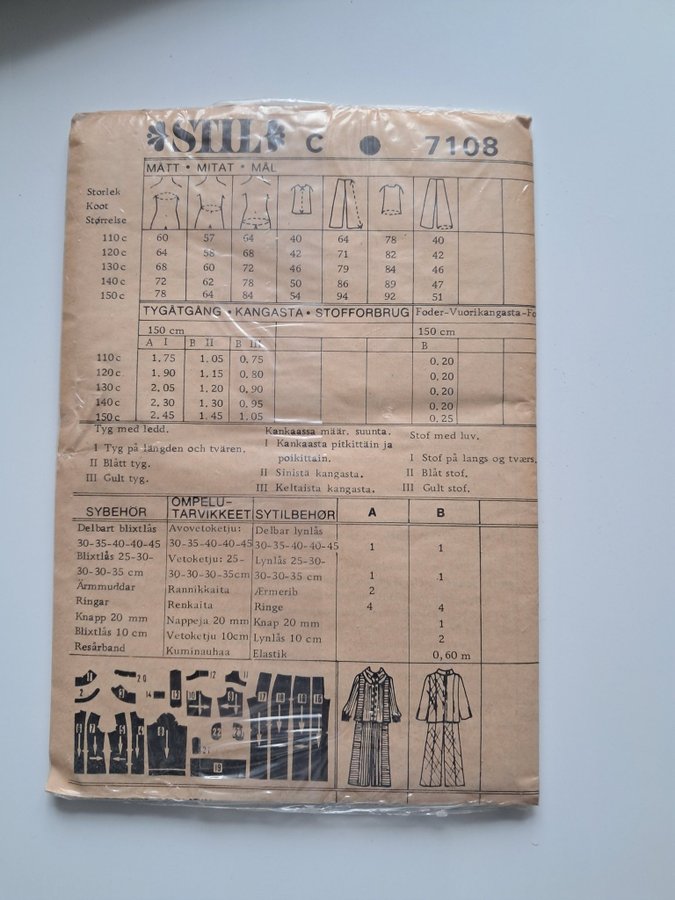 STIL C 7108
MÅTT • MITAT • MÅL
Storlek
Koot
Størrelse
110 c 60 57 64 40 64 78 40
120 c 64 58 68 42 71 82 42
130 c 68 60 72 46 79 84 46
140 c 72 62 78 50 86 89 47
150 c 78 64 84 54 94 92 51
TYGÅTGÅNG • KANGASTA • STOFFORBRUG Foder-Vuorikangasta-Fo
150 cm 150 cm
A I B II B III B
110 c 1.75 1.05 0.75 0.20
120 c 1.90 1.15 0.80 0.20
130 c 2.05 1.20 0.90 0.20
140 c 2.30 1.30 0.95 0.20
150 c 2.45 1.45 1.05 0.25
Tyg med ledd.
I Tyg på längden och tvären.
II Blått tyg.
III Gult tyg.
Kankaassa määr. suunta.
I Kankaasta pitkittäin ja
poikittain.
II Sinistä kangasta.
III Keltaista kangasta.
Stof med luv.
I Stof på langs og tværs.
II Blåt stof.
III Gult stof.
SYBEHÖR OMPELU-TARVIKKEET SYTILBEHØR A B
Delbart blixtlås Avovetoketju: Delbar lynlås
30-35-40-40-45 30-35-40-40-45 30-35-40-40-45 1 1
Blixtlås 25-30- Vetoketju: 25- Lynlås 25-30-
30-30-35 cm 30-30-30-35cm 30-30-35 cm 1 1
Ärmmuddar Rannikkaita Ærmerib 2
Ringar Renkaita Ringe 4 4
Knapp 20 mm Nappeja 20 mm Knap 20 mm 1
Blixtlås 10 cm Vetoketju 10cm Lynlås 10 cm 2
Resårband Kuminauhaa Elastik 0,60 m